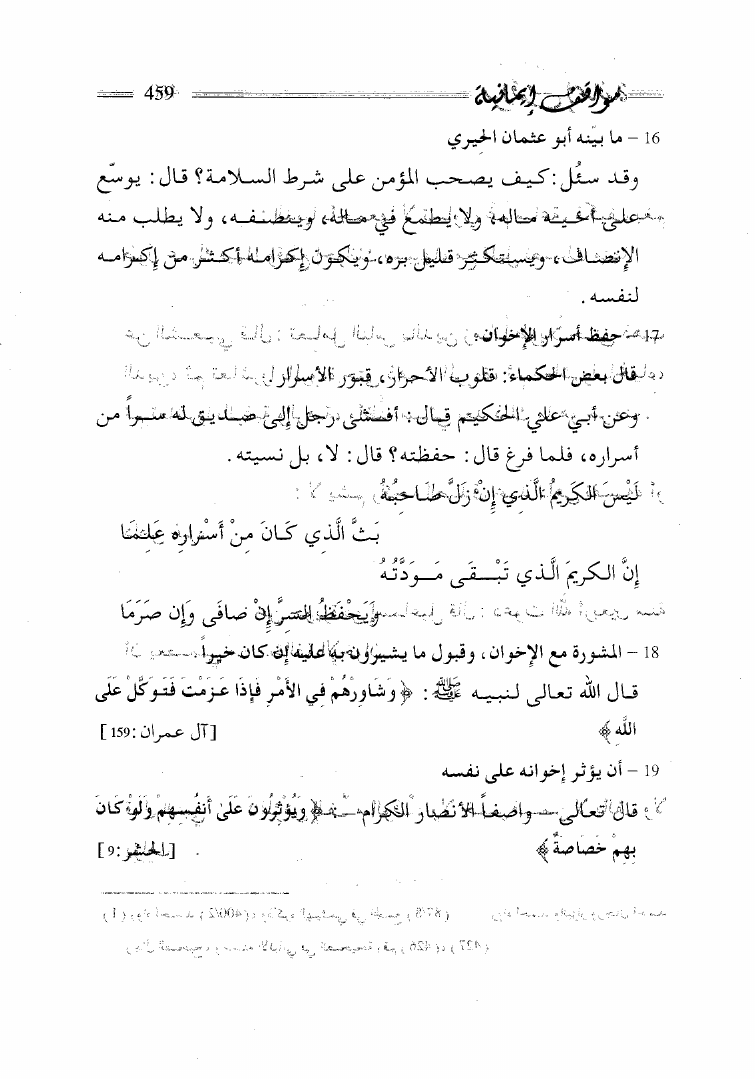 مواقف إيمانية 459
16 – ما بيّنه أبو عثمان الحيري
وقد سئل: كيف يصحب المؤمن على شرط السلامة؟ قال: يوسّع
على أخيه ماله، ولا يطمع في ماله، وينصفه، ولا يطلب منه
الإنصاف، ويستكثر قليل بره، ويكون إكرامه أكثر من إكرامه
لنفسه.
17 – حفظ أسرار الإخوان
قال بعض الحكماء: قلوب الأحرار، قبور الأسرار
وعن أبي علي الحكيم قال: أفشى رجل إلى صديق له سراً من
أسراره، فلما فرغ قال: حفظته؟ قال: لا، بل نسيته.
لَيْسَ الكَرِيمُ الَّذِي إِنْ زَلَّ صَاحِبُهُ
بَثَّ الَّذِي كَانَ مِنْ أَسْرارِهِ عَلِمَا
إِنَّ الكريمَ الَّذي تَبْـقَى مَـودَّتُهُ
وَيَحْفَظُ السِرَّ إِنْ صَافَى وَإِن صَرَمَا
18 – المشورة مع الإخوان، وقبول ما يشيرون به عليه إن كان خيراً
قال الله تعالى لنبيه ﷺ: ﴿وَشَاوِرْهُمْ فِي الأَمْرِ فَإِذَا عَزَمْتَ فَتَوَكَّلْ عَلَى
اللَّهِ﴾ [آل عمران: 159]
19 – أن يؤثر إخوانه على نفسه
قال تعالى – واصفاً الأنصار الكرام –: ﴿وَيُؤْثِرُونَ عَلَىٰ أَنفُسِهِمْ وَلَوْ كَانَ
بِهِمْ خَصَاصَةٌ﴾ [الحشر: 9]